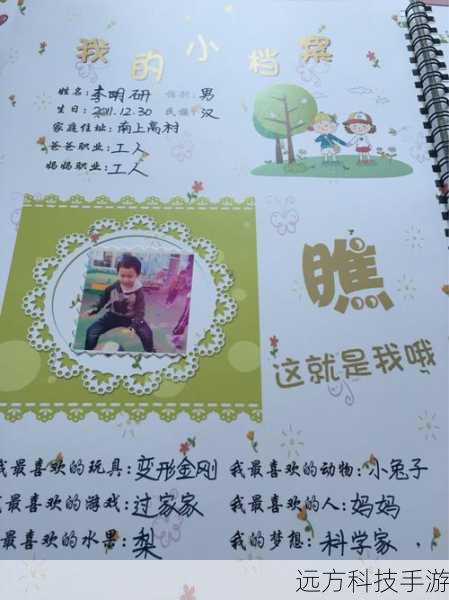 我的小档案
姓名:李明研 性别:男
生日:2011.12.30 民族:汉
家庭住址:南上高村
爸爸职业:工人
妈妈职业:工人
瞧
这就是我哦
我最喜欢的玩具:变形金刚 我最喜欢的动物:小兔子
我最喜欢的游戏:过家家 我最喜欢的人:妈妈
最喜欢的水果:梨 我的梦想:科学家
远方科技手游